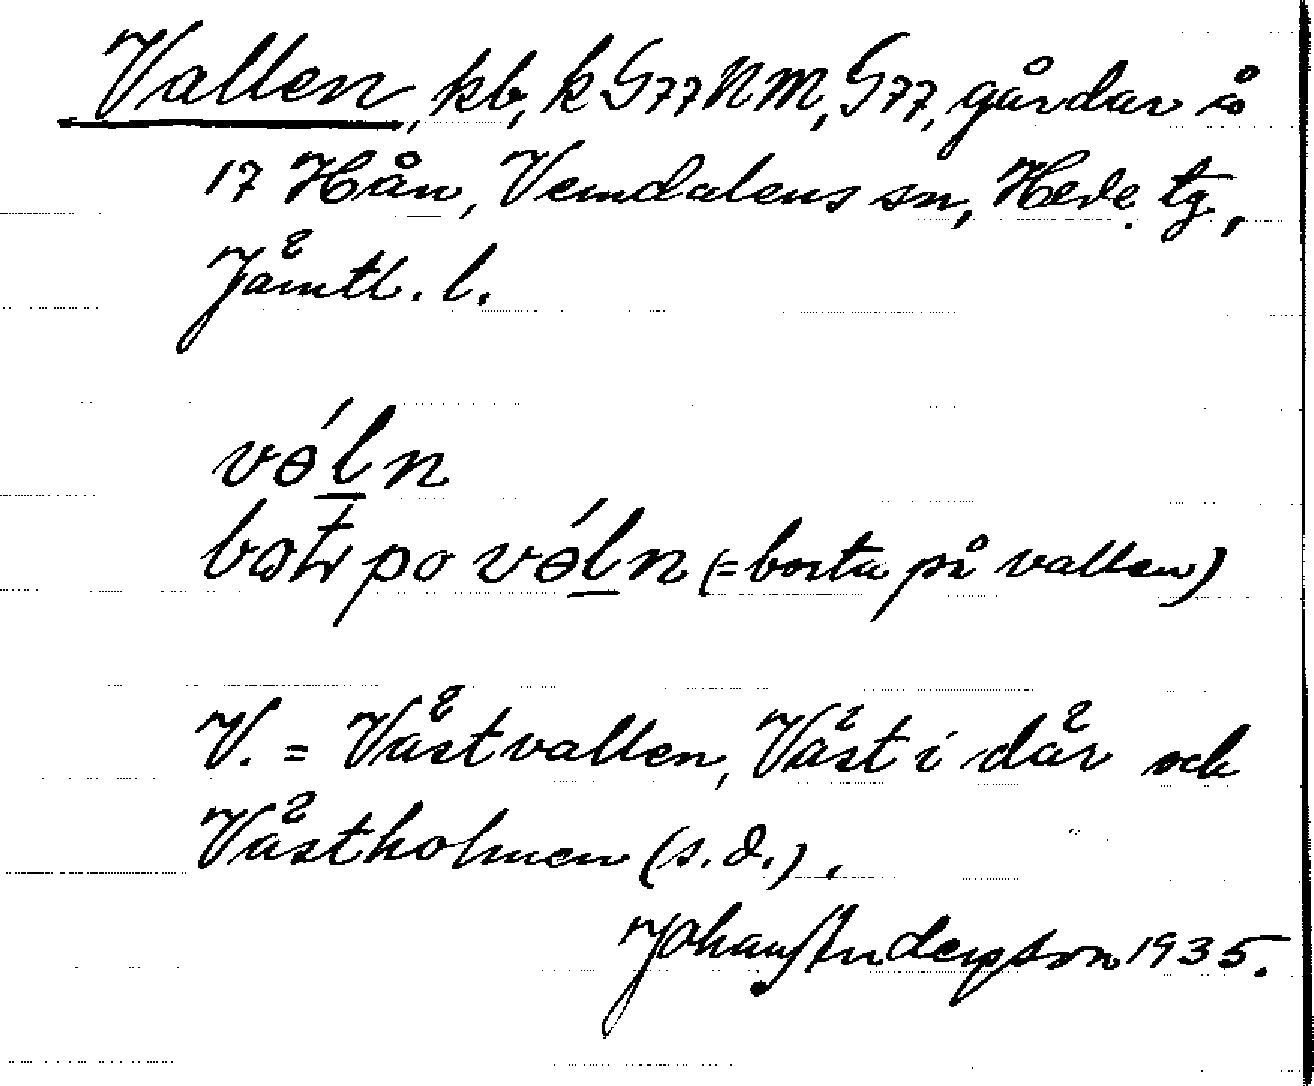 Vallen, kb, k G77NM, G77, gårdar å
17 Hån, Vemdalens sn, Hede tg,
Jämtl. l.
vól̲n
po vól̲n (= borta på vallen)
V. = Västvallen, Väst i där och
Västholmen (s.d.).
Johan Anderson 1935.